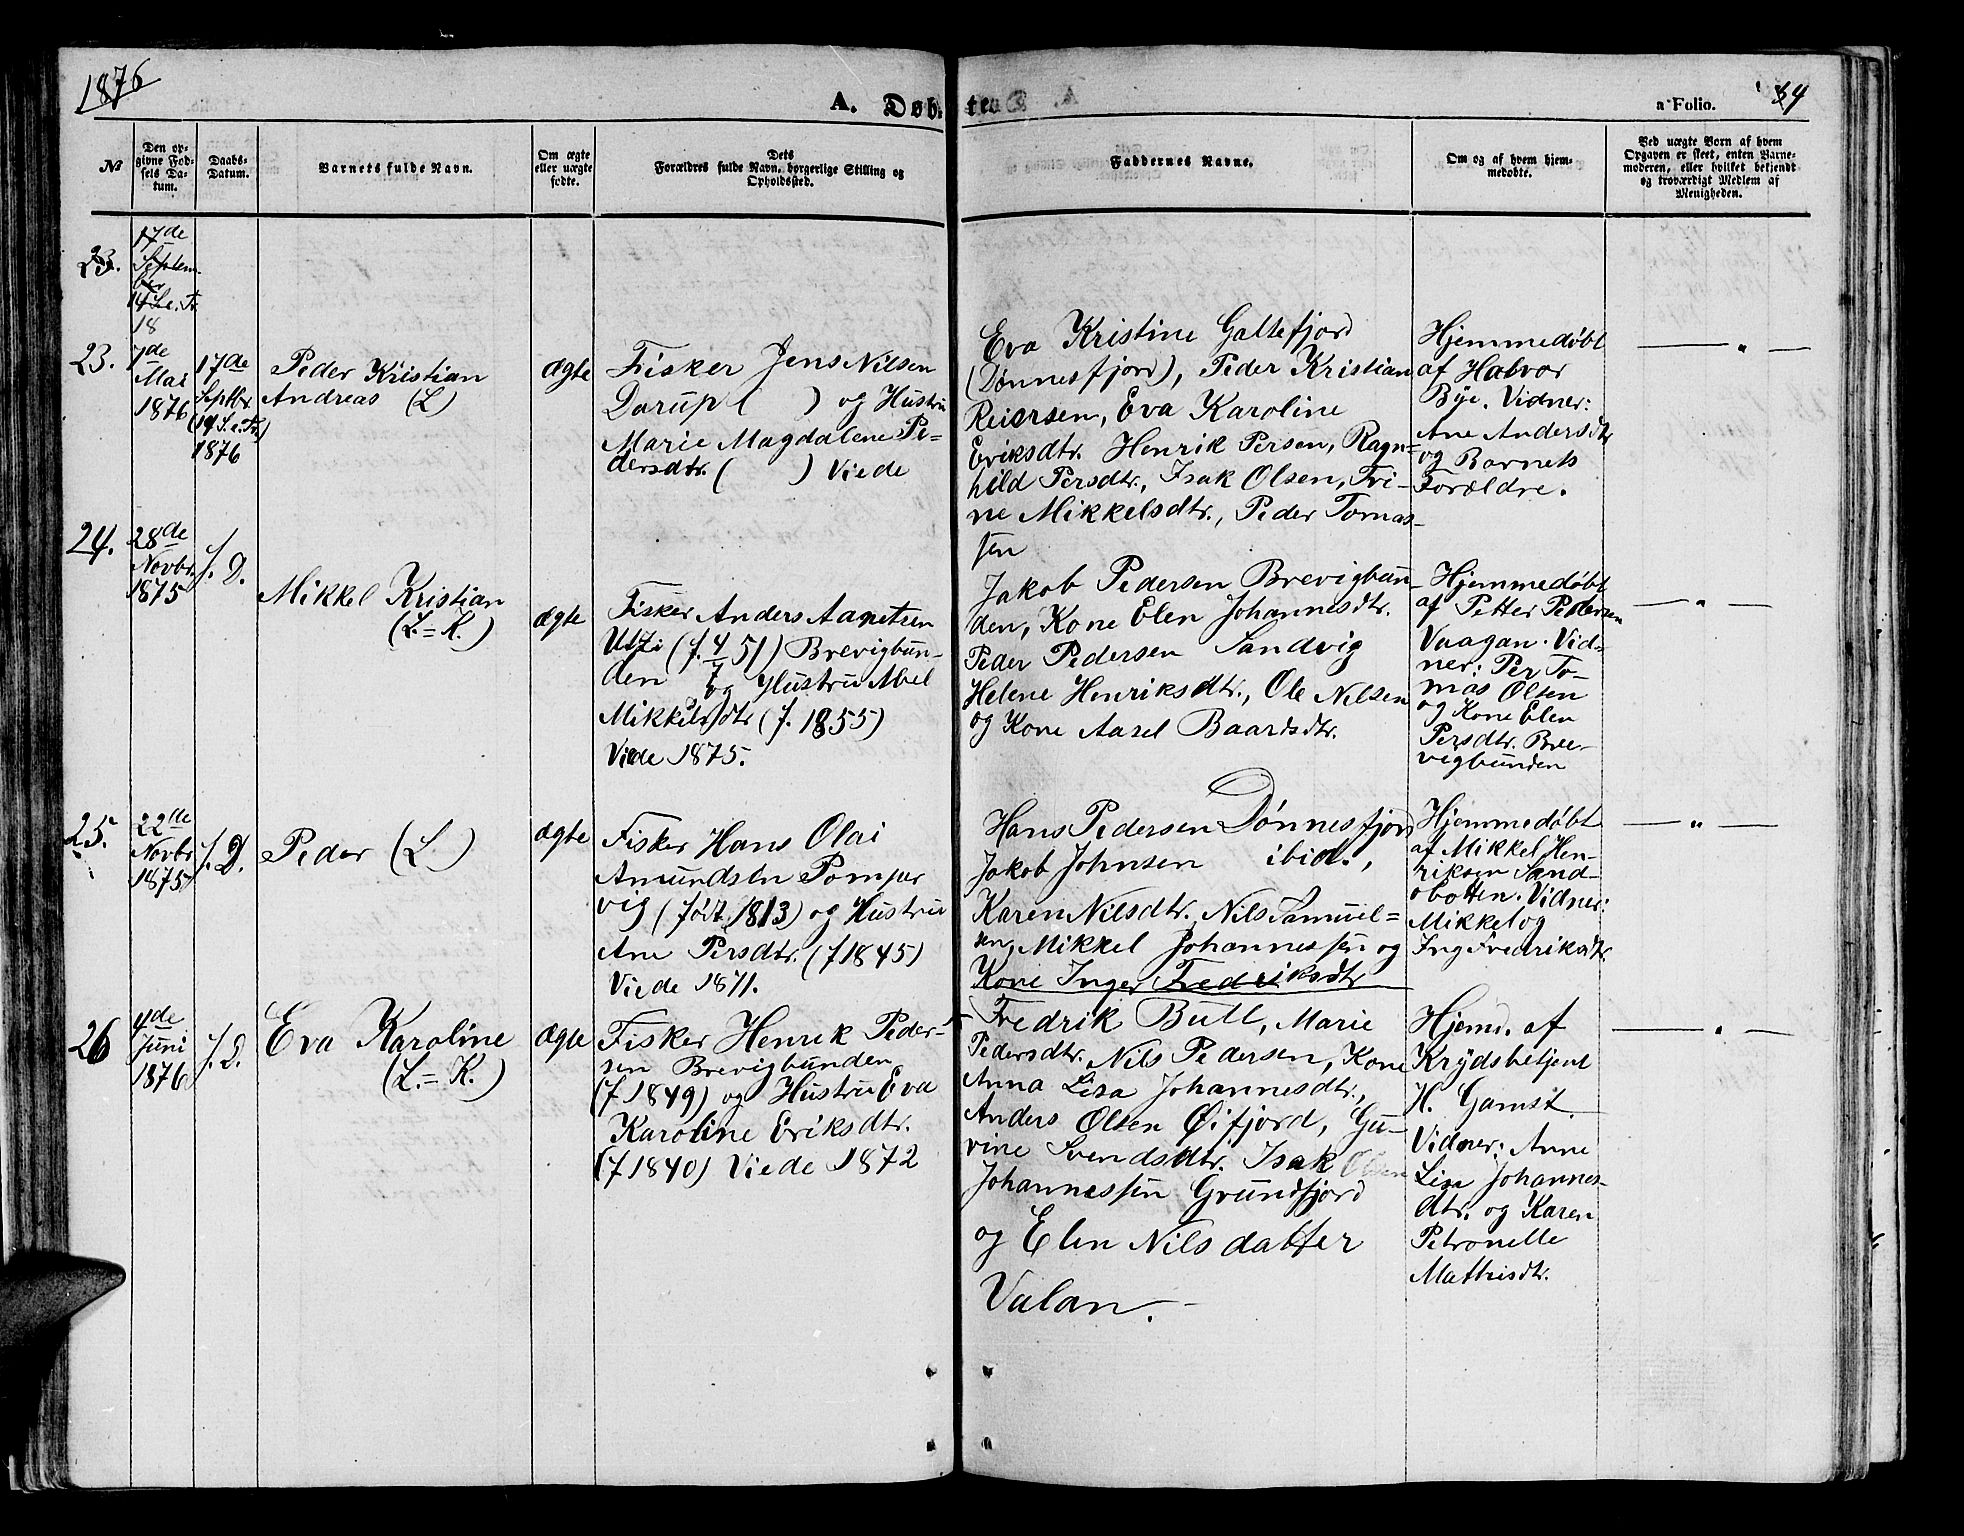 1876
A. Døb-
te.
a Folio.
34
No
Den op-
givne Fød-
sels Da-
tum.
Daabs-
Datum.
Barnets fulde Navn.
Om ægte
eller uægte
fødte.
Dets
Forældres fulde Navn, borgerlige Stilling og
Opholdssted.
Faddernes Navne.
Om og af hvem hjem-
medøbt.
Ved uægte Børn af hvem
Opgaven er skeet, enten Barne-
moderen, eller hvilket bekjendt
og troværdigt Medlem af
Menigheden.
23.
17de
Septem-
ber
14 S. e. Tr.
18
23.
7de
Mai
1876
17de
Septbr.
(14 S. e. Tr.)
1876
Peder Kristian
Andreas (L)
ægte
Fisker Jens Nilsen
Darup ( ) og Hustru
Marie Magdalene Pe-
dersdtr. ( ) Viede
Eva Kristine Galtefjord
(Dønnesfjord), Peder Kristian
Reiersen, Eva Karoline
Eriksdtr. Henrik Persen, Ragn-
hild Persdtr., Isak Olsen, Tri-
ne Mikkelsdtr., Peder Tomas-
sen
Hjemmedøbt
af Halvor
Bye. Vidner:
Ane Andersdtr
og Barnets
Forældre.
24.
28de
Novbr.
1875
s. D.
Mikkel Kristian
(L. = K.)
ægte
Fisker Anders Aagetsen
Utsi (f. 4/7 51) Brevigbun-
den og Hustru Abel
Mikkelsdtr (f. 1855)
Viede 1875.
Jakob Pedersen Brevigbun-
den, Kone Elen Johannesdtr.
Peder Pedersen Sandvig
Helene Henriksdtr., Ole Nilsen
og Kone Aasel Baardsdtr.
Hjemmedøbt
af Petter Pedersen
Vaagan. Vid-
ner: Per To-
mas Olsen
og Kone Elen
Persdtr. Bre-
vigbunden
25.
22de
Novbr
1875
s. D.
Peder (L)
ægte
Fisker Hans Olai
Amundsen Pompar
vig (født 1813) og Hustru
Ane Persdtr. (f 1845)
Viede 1871.
Hans Pedersen Dønnesfjord
Jakob Johnsen ibid.,
Karen Nilsdtr. Nils Samuel=
sen, Mikkel Johannessen og
Kone Inger Fredriksdtr
Hjemmedøbt
af Mikkel Hen-
riksen Sand-
obotten. Vidner:
Mikkel og
Ing Fredriksdtr.
26
4de
Juni
1876
s. D.
Eva Karoline
(L. = K.)
ægte
Fisker Henrik Peder-
sen Brevigbunden
(f 1849) og Hustru Eva
Karoline Eriksdtr.
(f 1840) Viede 1872
Fredrik Bull, Marie
Pedersdtr. Nils Pedersen, Kone
Anna Lisa Johannesdtr.,
Anders Olsen Øifjord, Gu-
rine Svendsdtr. Isak Olsen
Johannessen Grundfjord
og Elen Nilsdatter
Valan.
Hjemd. af
Krydsbetjent
H. Gamst.
Vidner: Anne
Lisa Johannes-
dtr. og Karen
Petronelle
Mathisdtr.